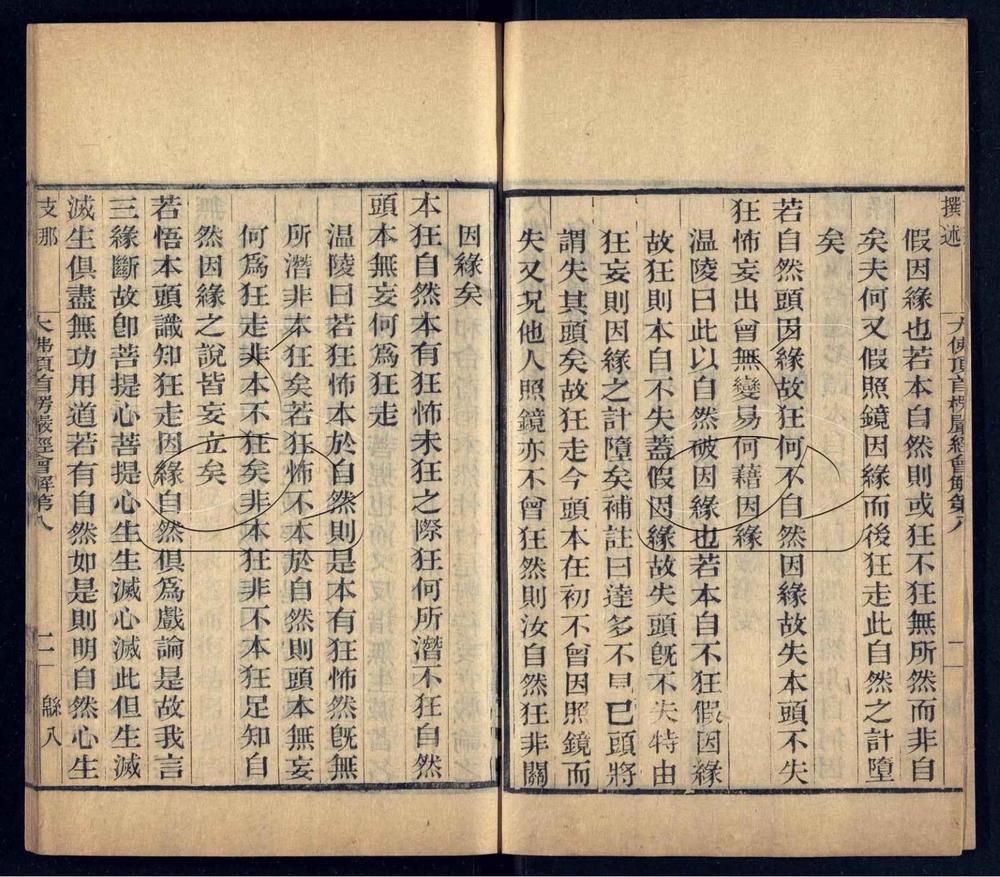 撰述
大佛頂首楞嚴經會解第八
一
假因緣也若本自然則或狂不狂無所然而非自
矣夫何又假照鏡因緣而後狂走此自然之計墮
矣
若自然頭因緣故狂何不自然因緣故失本頭不失
狂怖妄出曾無變易何藉因緣
温陵曰此以自然破因緣也若本自不狂假因緣
故狂則本自不失蓋假因緣故失頭旣不失特由
狂妄則因緣之計墮矣補註曰達多不見已頭將
謂失其頭矣故狂走今頭本在初不曾因照鏡而
失又況他人照鏡亦不曾狂然則汝自然狂非關
因緣矣
本狂自然本有狂怖未狂之際狂何所潛不狂自然
頭本無妄何爲狂走
温陵曰若狂怖本於自然則是本有狂怖然旣無
所潛非本狂矣若狂怖不本於自然則頭本無妄
何爲狂走非本不狂矣非本狂非不本狂足知自
然因緣之說皆妄立矣
若悟本頭識知狂走因緣自然俱爲戲論是故我言
三緣斷故卽菩提心菩提心生生滅心滅此但生滅
滅生俱盡無功用道若有自然如是則明自然心生
支那
大佛頂首楞嚴經會解第八
二
緜八